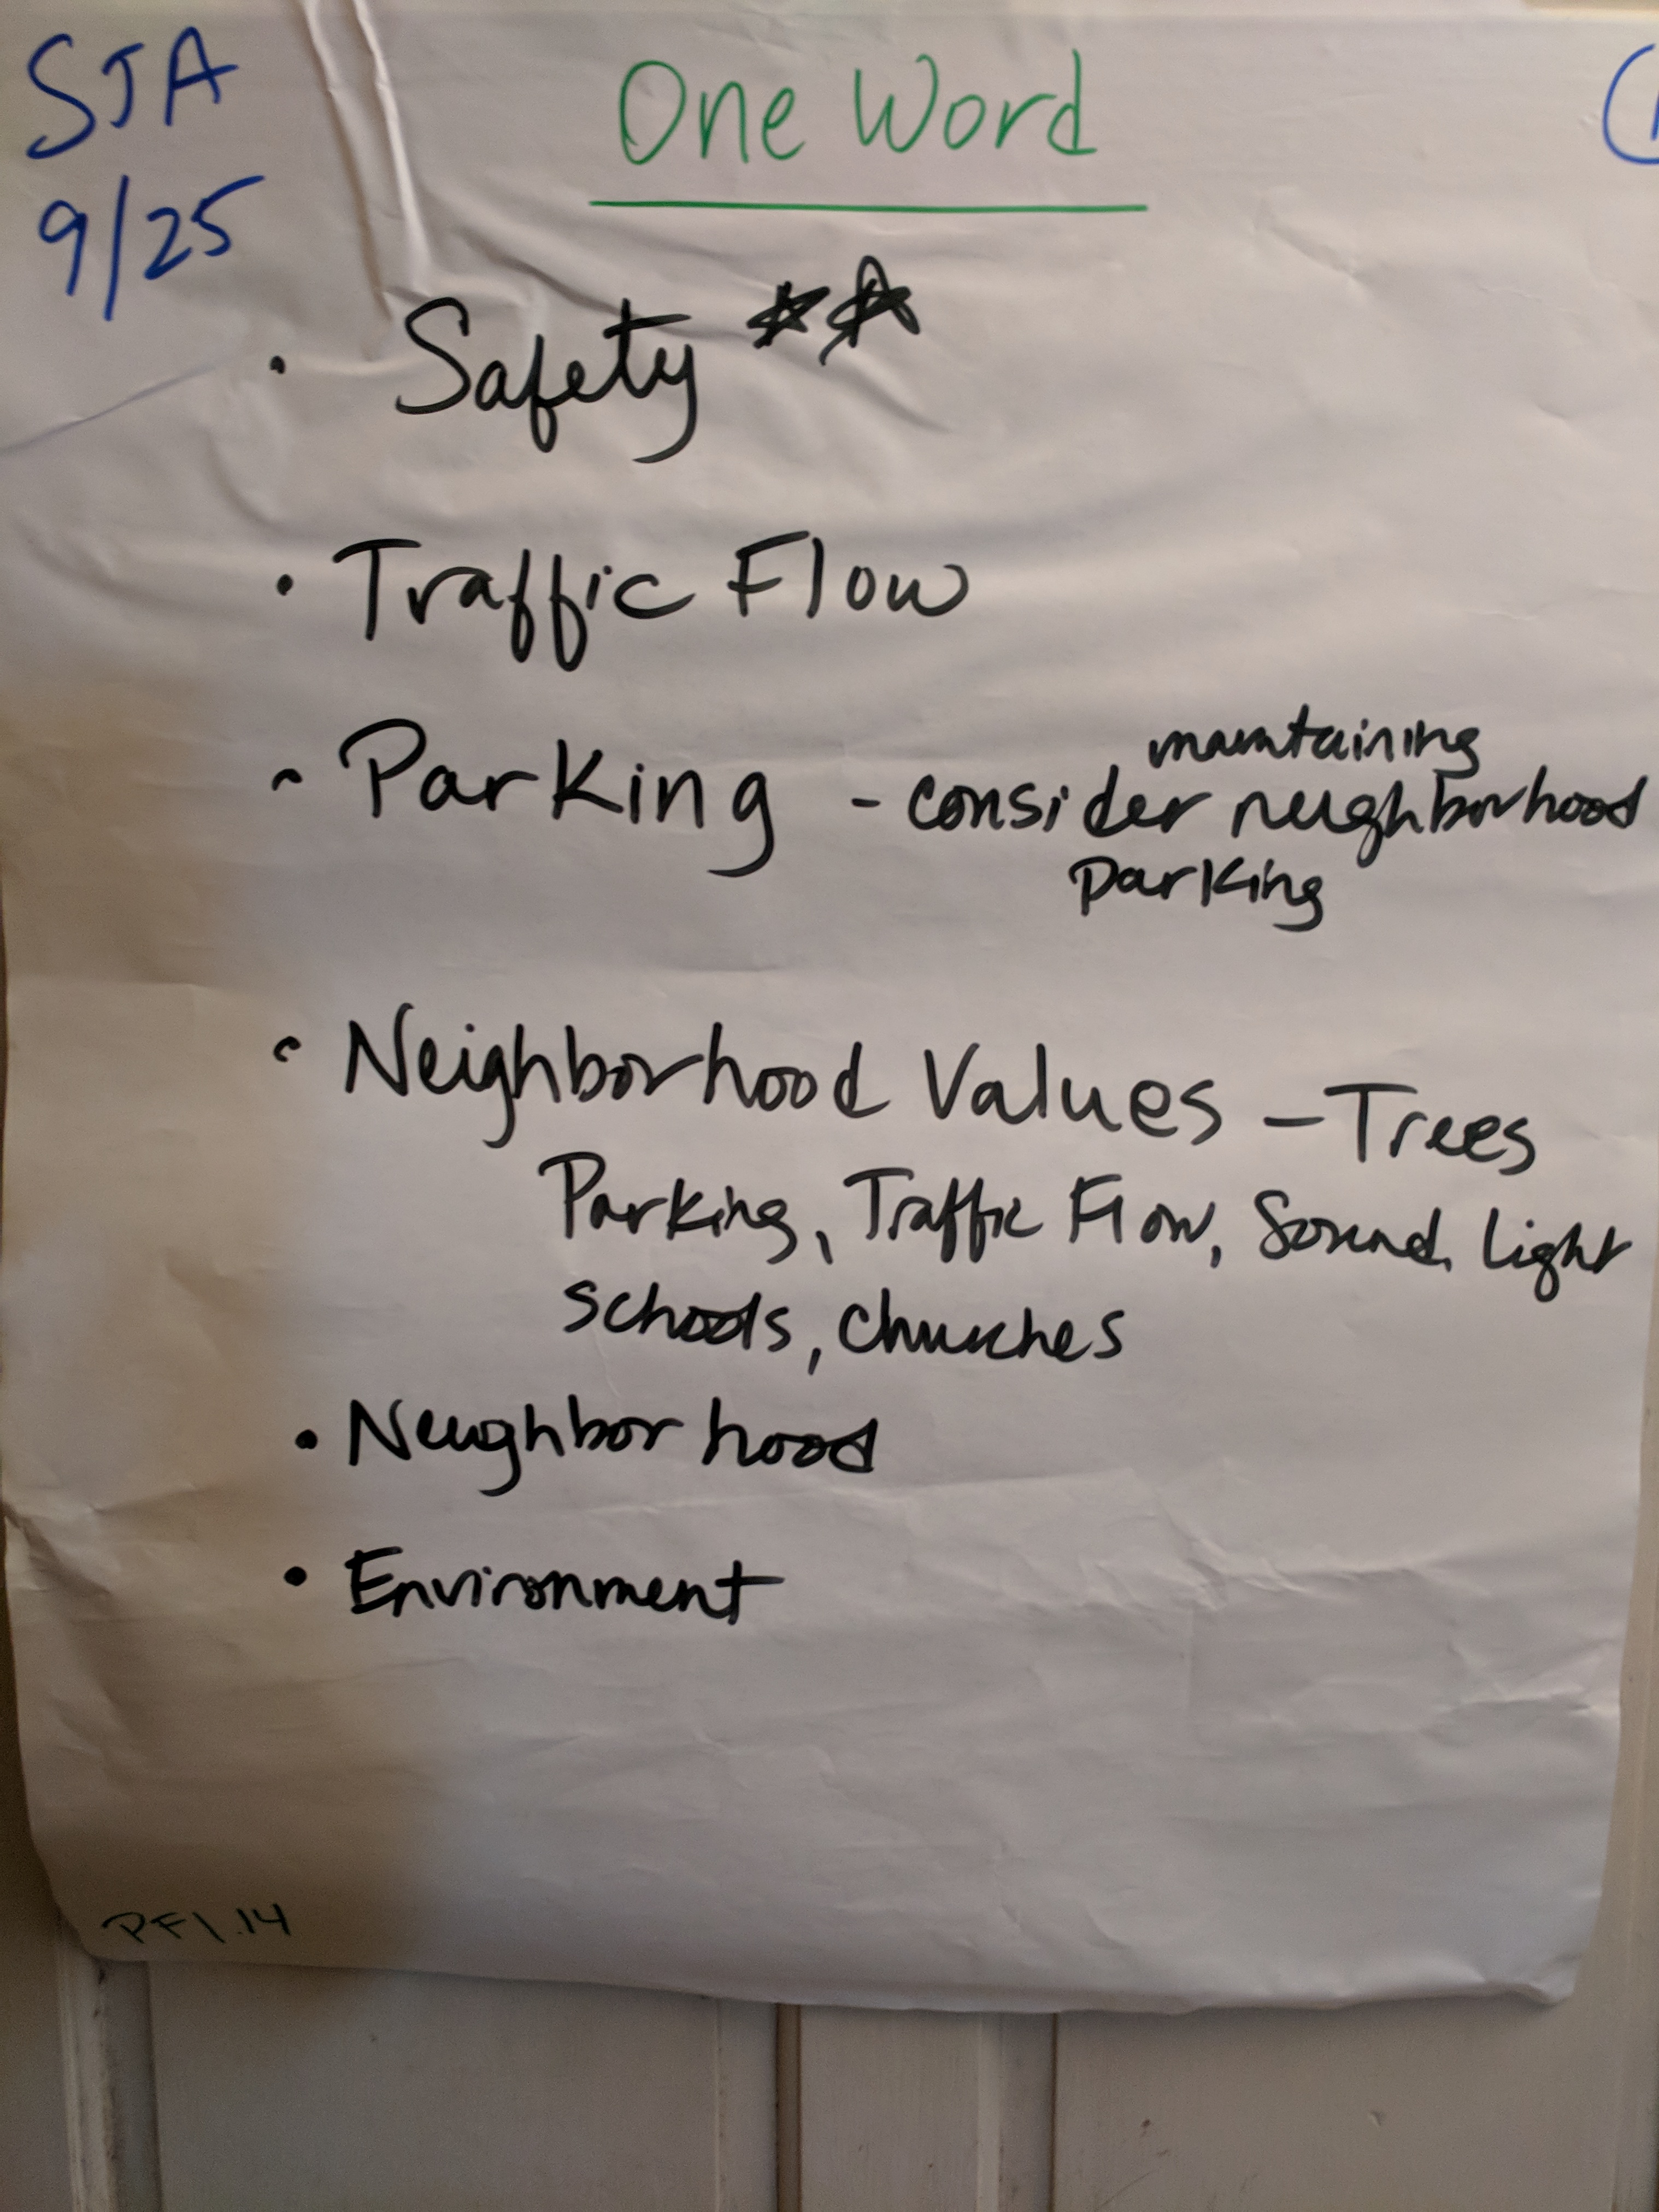 STA
9/25
One Word
• Safety **
• Traffic Flow
maintaining
• Parking - consider neighborhood
parking
• Neighborhood Values - Trees
Parking, Traffic Flow, Sound, Light
schools, churches
• Neighborhood
• Environment
PF1.14